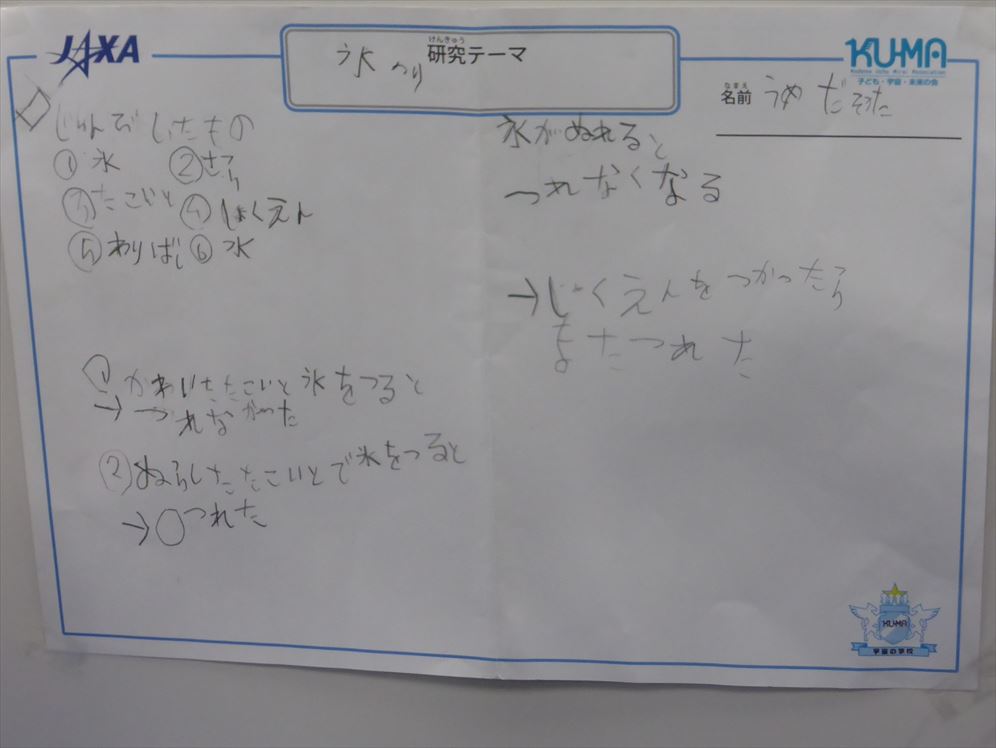 JAXA
けんきゅう
研究テーマ
氷つり
KU-MA
Kodomo Uchu Mirai Association
子ども・宇宙・未来の会
なまえ
名前 うめだそうた
じゅんびしたもの
①氷 ②さら
③たこいと ④しょくえん
⑤わりばし ⑥水
①かわいたたこいと氷をつると
→つれなかった
②ぬらしたたこいとで氷をつると
→○つれた
氷がぬれると
つれなくなる
→しょくえんをつかったら
またつれた
KU-MA
宇宙の学校